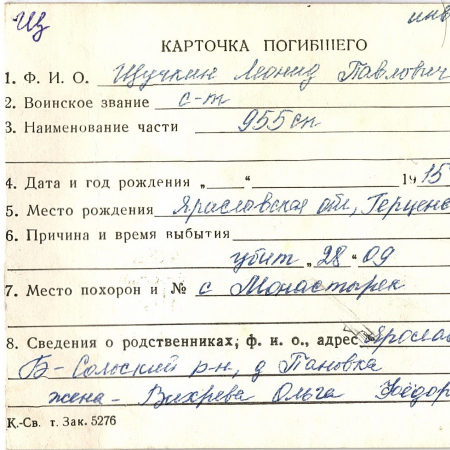 Щ инв
КАРТОЧКА ПОГИБШЕГО
1. Ф. И. О. Щучкин Леонид Павлович
2. Воинское звание с-т
3. Наименование части 955 сп
4. Дата и год рождения „ “ 1915
5. Место рождения Ярославская обл, Герценс
6. Причина и время выбытия
убит „28“ 09
7. Место похорон и № с Монастырек
8. Сведения о родственниках, ф. и. о., адрес Ярослав
Б-Сольский р-н, д Пановка
жена - Вихрева Ольга Фёдор
К.-Св. т. Зак. 5276